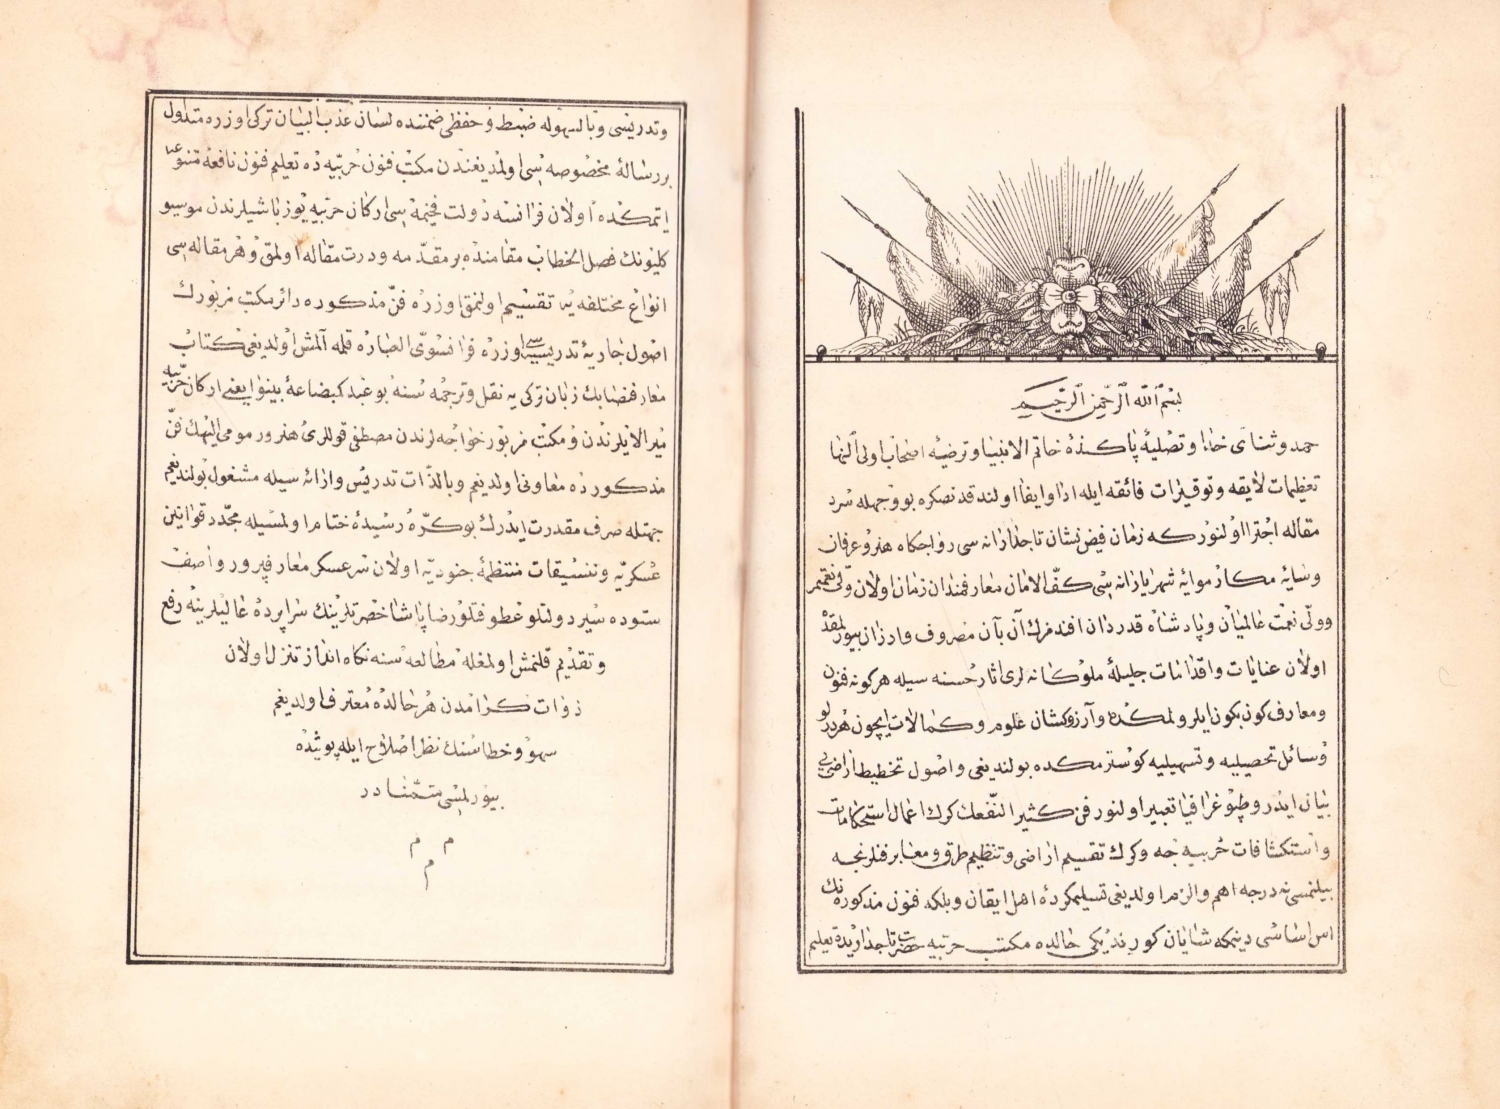 بسم الله الرحمن الرحيم
حمد وثنای خدا وتصلیهٔ پاکیزهٔ خاتم الانبیا وترضیهٔ اصحاب اولی النها
تعظیمات لایقه وتوقیرات فائقه ایله ادا وایفا اولندقدنصکره بو وجهله سرد
مقاله اجترا اولنورکه زمان فیض نشان تاجدارانه سی رواجکاه هنر وعرفان
وسایهٔ مکارموایهٔ شهریارانه سی کف الامان معارفمندان زمان اولان ولی نعمتمز
وولی نعمت عالمیان وپادشاه قدردان افندمزک آن بآن مصروف وارزان بیورلمقده
اولان عنایات واقدامات جلیلهٔ ملوکانه لری اثار حسنه سیله هرکونه فنون
ومعارف کون بکون ایلرولمکده وآرزوکشان علوم وکمالات ایچون هر درلو
وسائل تحصیلیه وتسهیلیه کوسترمکده بولندیغی واصول تخطیط اراضی یی
بیان ایدر وطپوغرافیا تعبیر اولنور فن کثیر النفعک کرک اعمال استحکامات
واستکشافات حربیه جه وکرک تقسیم اراضی وتنظیم طرق ومعابر فنلرنجه
بیلنمسی نه درجه اهم والزم اولدیغی تسلیمکردهٔ اهل ایقان وبلکه فنون مذکوره نک
اس اساسی دینمکه شایان کورندیکی حالده مکتب حربیه حضرت تاجداریده تعلیم
وتدریسی وبالسهوله ضبط وحفظی ضمننده لسان عذب البیان ترکی اوزره متداول
بر رسالهٔ مخصوصه سی اولمدیغندن مکتب فنون حربیه ده تعلیم فنون نافعهٔ متنوعه
ایتمکده اولان فرانسه دولت فخیمه سی ارکان حربیه یوزباشیلرندن موسیو
کلیونک فصل الخطاب مقامنده بر مقدمه ودرت مقاله اولمق وهر مقاله سی
انواع مختلفه یه تقسیم اولنمق اوزره فن مذکوره دائر مکتب مزبورک
اصول جاریهٔ تدریسیه سی اوزره فرانسوی العباره قلمه آلمش اولدیغی کتاب
معارفنصابک زبان ترکی یه نقل وترجمه سنه بو عبد کمبضاعهٔ بینوا یعنی ارکان حربیه
میرالایلرندن ومکتب مزبور خواجه لرندن مصطفی قوللری هنرور مومی الیهک فن
مذکورده معاونی اولدیغم وبالذات تدریس وارائه سیله مشغول بولندیغم
جهتله صرف مقدرت ایدرک بو کره رسیدهٔ ختام اولمسیله مجدد قوانین
عسکریه وتنسیقات منتظمهٔ جنودیه اولان سرعسکر معارفپرور واصف
ستوده سیر دولتلو عطوفتلو رضا پاشا حضرتلرینک سراپردهٔ عالیلرینه رفع
وتقدیم قلنمش اولمغله مطالعه سنه نکاه انداز تنزل اولان
ذوات کرامدن هر حالده معترف اولدیغم
سهو وخطاسنک نظر اصلاح ایله پوشیده
بیورلمسی متمنادر
م م
م